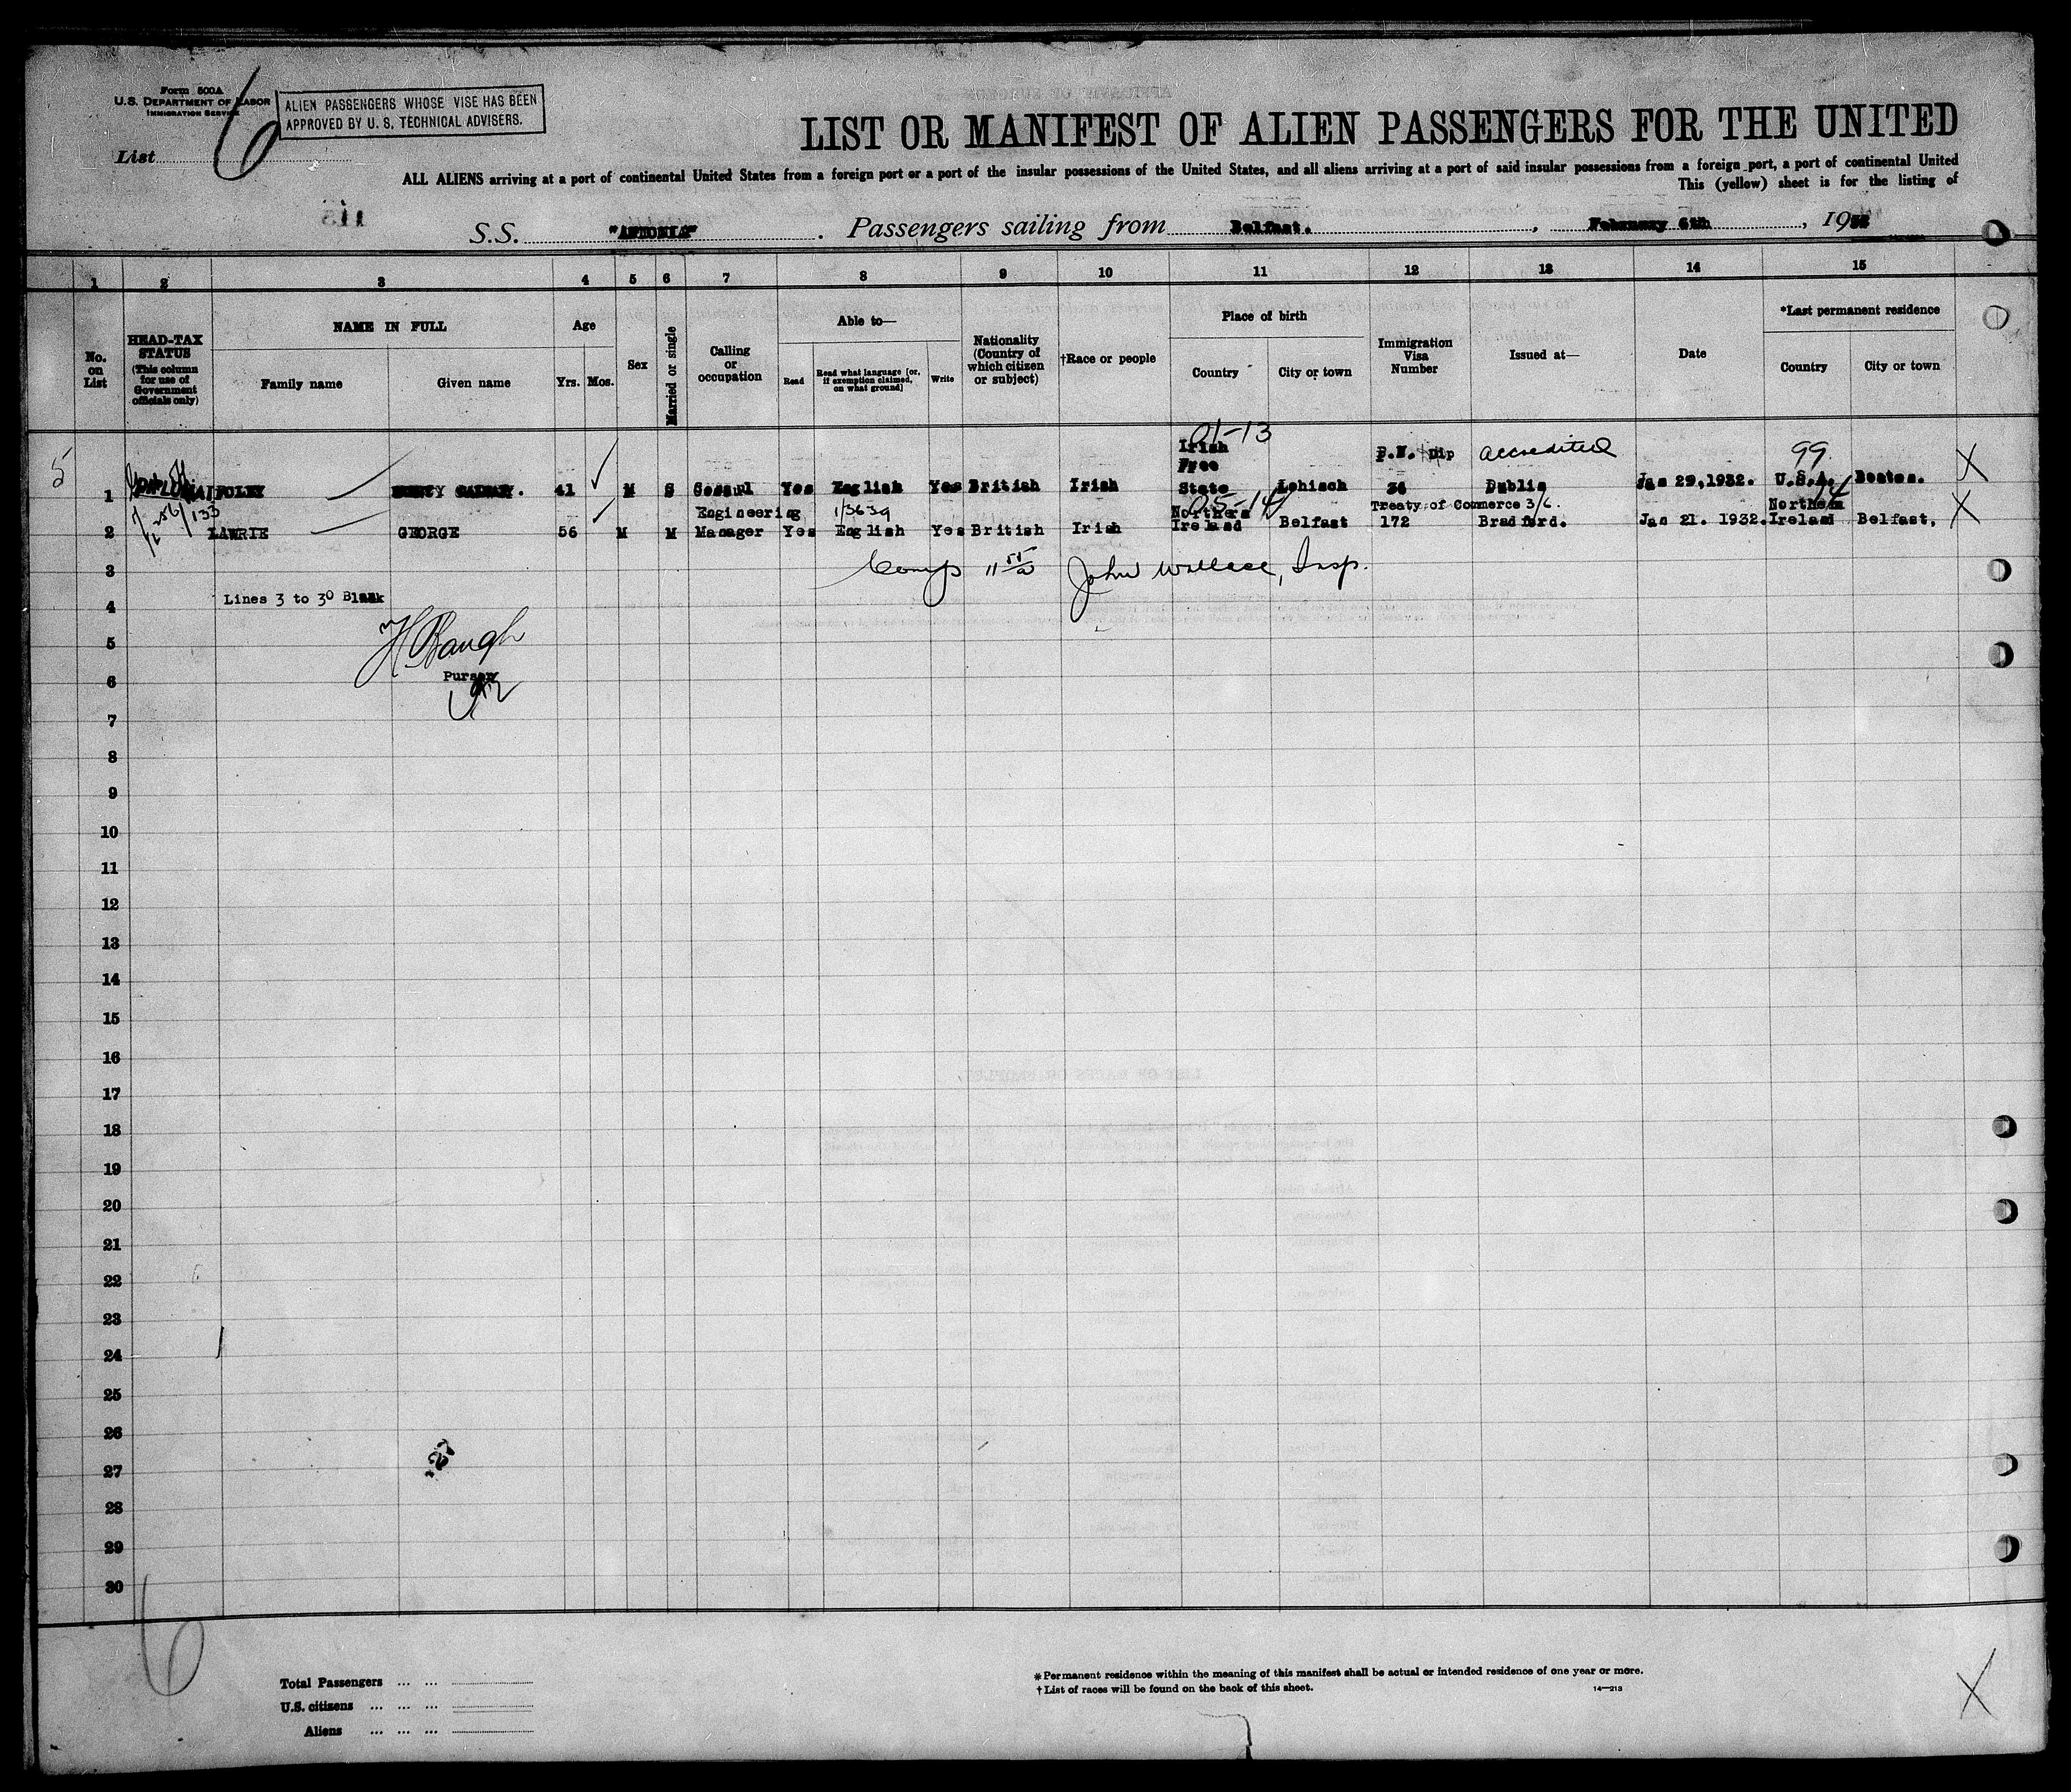 Form 500A
U.S. DEPARTMENT OF LABOR
IMMIGRATION SERVICE
ALIEN PASSENGERS WHOSE VISE HAS BEEN
APPROVED BY U. S. TECHNICAL ADVISERS.
List 6
LIST OR MANIFEST OF ALIEN PASSENGERS FOR THE UNITED
ALL ALIENS arriving at a port of continental United States from a foreign port or a port of the insular possessions of the United States, and all aliens arriving at a port of said insular possessions from a foreign port, a port of continental United
This (yellow) sheet is for the listing of
115
S.S. "ANTONIA". Passengers sailing from Belfast. , February 6th , 1932
1 2 3 4 5 6 7 8 9 10 11 12 13 14 15
No. on List
HEAD-TAX STATUS
(This column for use of Government officials only)
NAME IN FULL
Family name Given name
Age
Yrs. Mos.
Sex
Married or single
Calling or occupation
Able to—
Read
Read what language [or, if exemption claimed, on what ground]
Write
Nationality (Country of which citizen or subject)
†Race or people
Place of birth
Country City or town
Immigration Visa Number
Issued at—
Date
*Last permanent residence
Country City or town
5
01-13
Irish
Free P.V. Dip accredited 99
1 DIPLOMAT FOLEY 41 M S Consul Yes English Yes British Irish State 36 Dublin Jan 29,1932. U.S.A. Boston. X
256/133 Engineering 1/3639 05-14 Northern Treaty of Commerce 3/6. Northern
2 LAWRIE GEORGE 56 M M Manager Yes English Yes British Irish Ireland Belfast 172 Bradford. Jan 21. 1932. Ireland Belfast, X
3 John Wallace, Insp.
Lines 3 to 30 Blank
4
H Baugh
5
Purser
6
7
8
9
10
11
12
13
14
15
16
17
18
19
20
21
22
23
24
25
26
27
28
29
30
6
Total Passengers ... ...
U.S. citizens ... ... ...
Aliens ... ... ...
*Permanent residence within the meaning of this manifest shall be actual or intended residence of one year or more.
†List of races will be found on the back of this sheet.
14—213
X